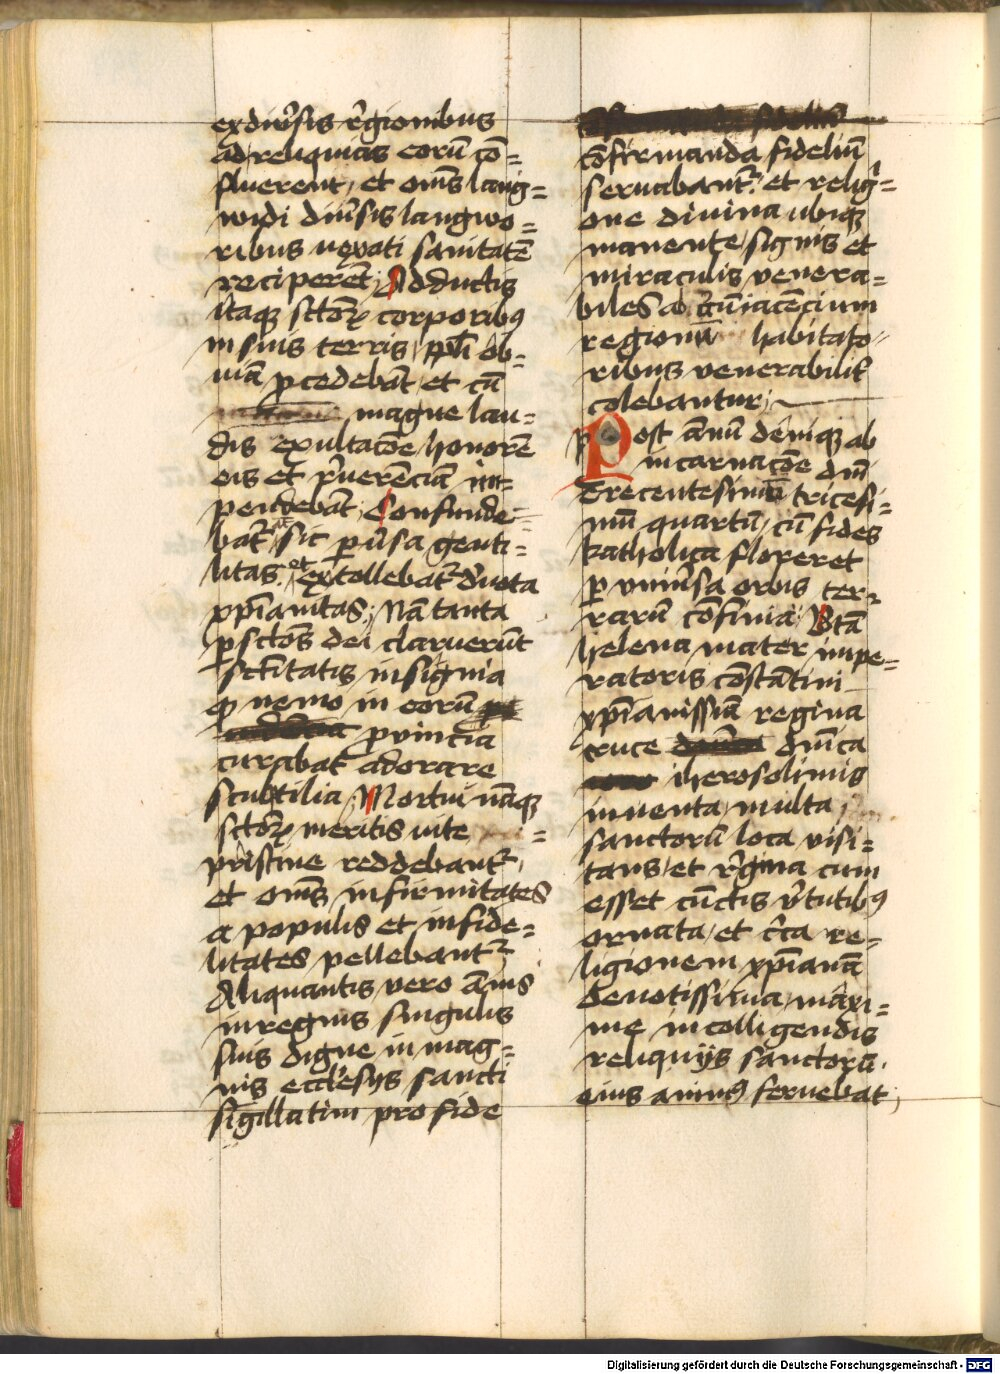 ex diu̾sis r̾gionibus
ad reliquias eorū cō=
fluerent, et om̄s lang=
widi diu̾sis langwo=
ribus uexati sanitatē
reciperēt; Adductis
itaqꝫ sctoꝝ corporibꝰ
in suis terris, ppl̄i ob=
uiā ꝓcedebāt, et cū
magne lau=
dis exultacōe, honorē
eis et r̾uerēciā im=
pendebāt; Confunde=
bat᷑ sic ꝑu̾sa genti=
litas, et extollebat᷑ deuota
xp̄ianitas; Nā tanta
ꝑ sctōs dei claruerūt
sctītatis insignia
ꝙ nemo in eorū
ꝓuincia
curabat adorare
sculptilia; Mortui nāqꝫ
sctoꝝ meritis uite
pristine reddebant᷑,
et om̄s infirmitates
a populis et infide=
litates pellebant᷑;
Aliquantis vero ānis
in regnis singulis
suis digne in mag=
nis eccl̄esijs sancti
sigillatim pro fide
cōfirmanda fidelium̄
seruabant᷑, et religi=
one diuina ubiqꝫ
manente, signis et
miraculis venera=
biles a cc̄uiacēcium
regionū habitato=
ribus venerabilit̾
colebantur;
Post ānū deniqꝫ ab
incarnacōe dn̄i
trecentesimū tricesi=
mū quartū, cū fides
katholica floreret
ꝑ vniu̾sa orbis ter=
rarū cōfinia; Btā
helena mater impe=
ratoris cōstātini
xp̄ianissiā regina
cruce dn̄ica
iherosolimis
inuenta, multa
sanctorū loca visi=
tans, et r̾gina cum
esset cūctis v̾tutibꝰ
ornata, et c̾ca re=
ligionem xp̄ianā
deuotissima, maxi=
me in colligendis
reliquijs sanctorū
eius animꝰ feruebat;
Digitalisierung gefördert durch die Deutsche Forschungsgemeinschaft - DFG